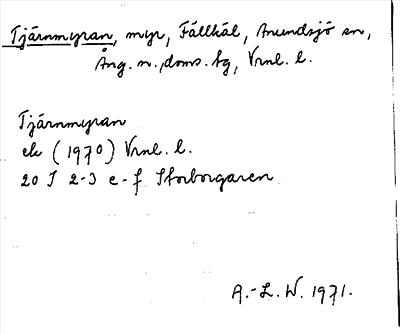 Tjärnmyran, myr, Fällhäl, Anundsjö sn,
Ång. n., doms. hg, Vrnl. l.
Tjärnmyran
ek (1970) Vrnl. l.
20 I 2-3 e-f Storborgaren
A.-L. W. 1971.